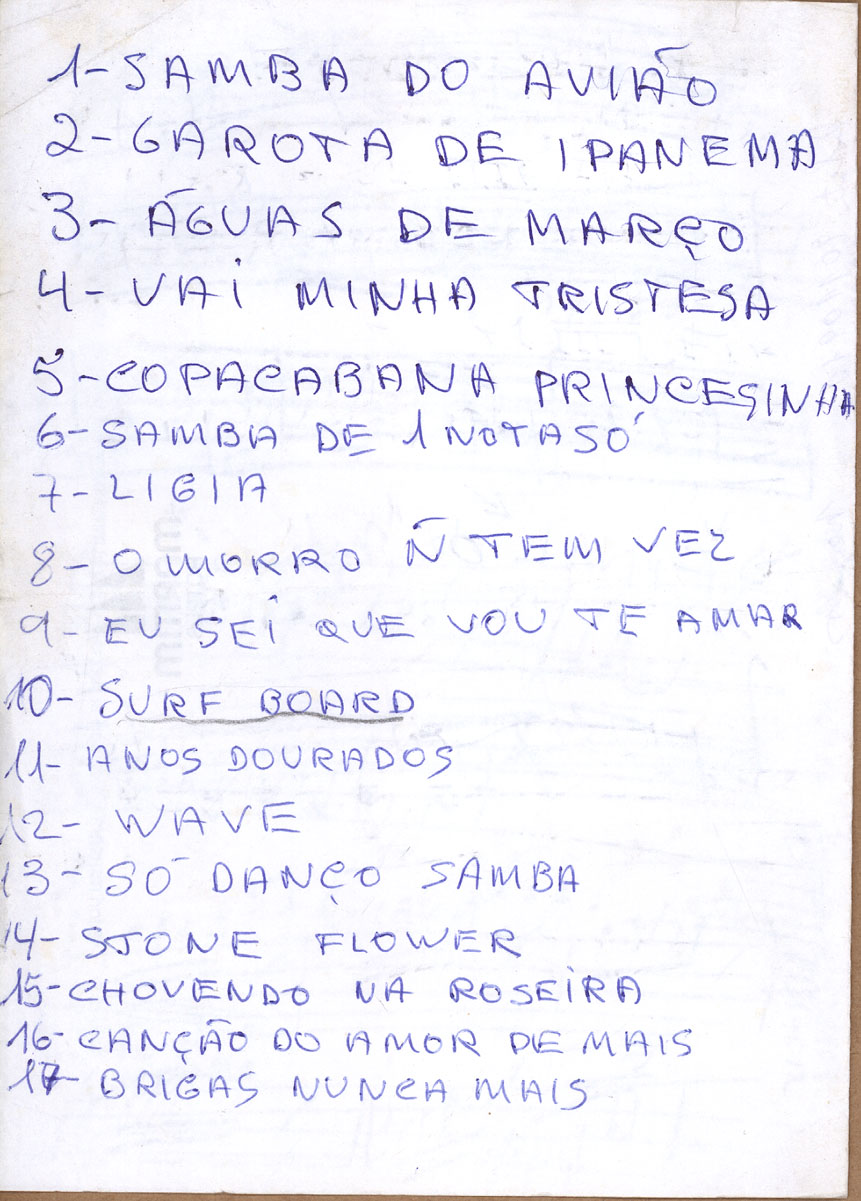 1- SAMBA DO AVIÃO
2- GAROTA DE IPANEMA
3- ÁGUAS DE MARÇO
4- VAI MINHA TRISTESA
5- COPACABANA PRINCESINHA
6- SAMBA DE 1 NOTA SÓ
7- LIGIA
8- O MORRO Ñ TEM VEZ
9- EU SEI QUE VOU TE AMAR
10- SURF BOARD
11- ANOS DOURADOS
12- WAVE
13- SÓ DANÇO SAMBA
14- STONE FLOWER
15- CHOVENDO NA ROSEIRA
16- CANÇÃO DO AMOR DE MAIS
17- BRIGAS NUNCA MAIS